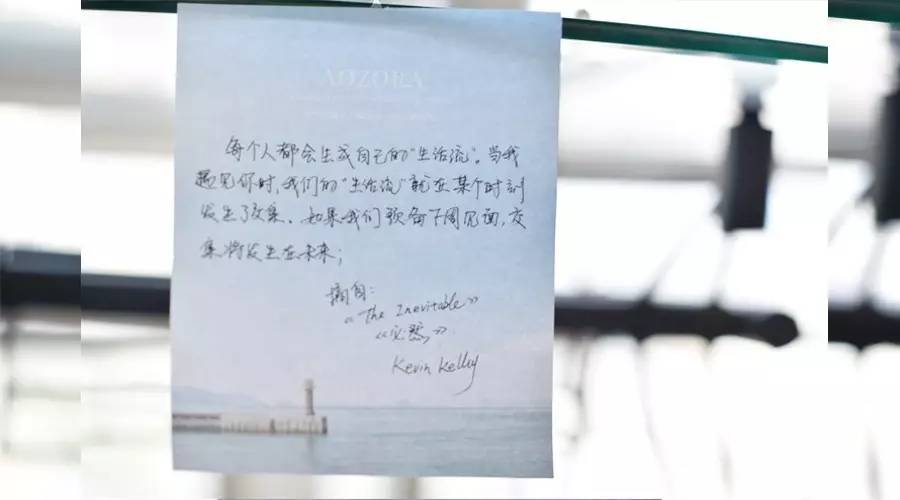 AOZORA
每个人都会生成自己的"生活流"。当我
遇见你时,我们的"生活流"就在某个时刻
发生了交集。如果我们预备下周见面,交
集将发生在未来;
摘自:
《The Inevitable》
《必然》
Kevin Kelly